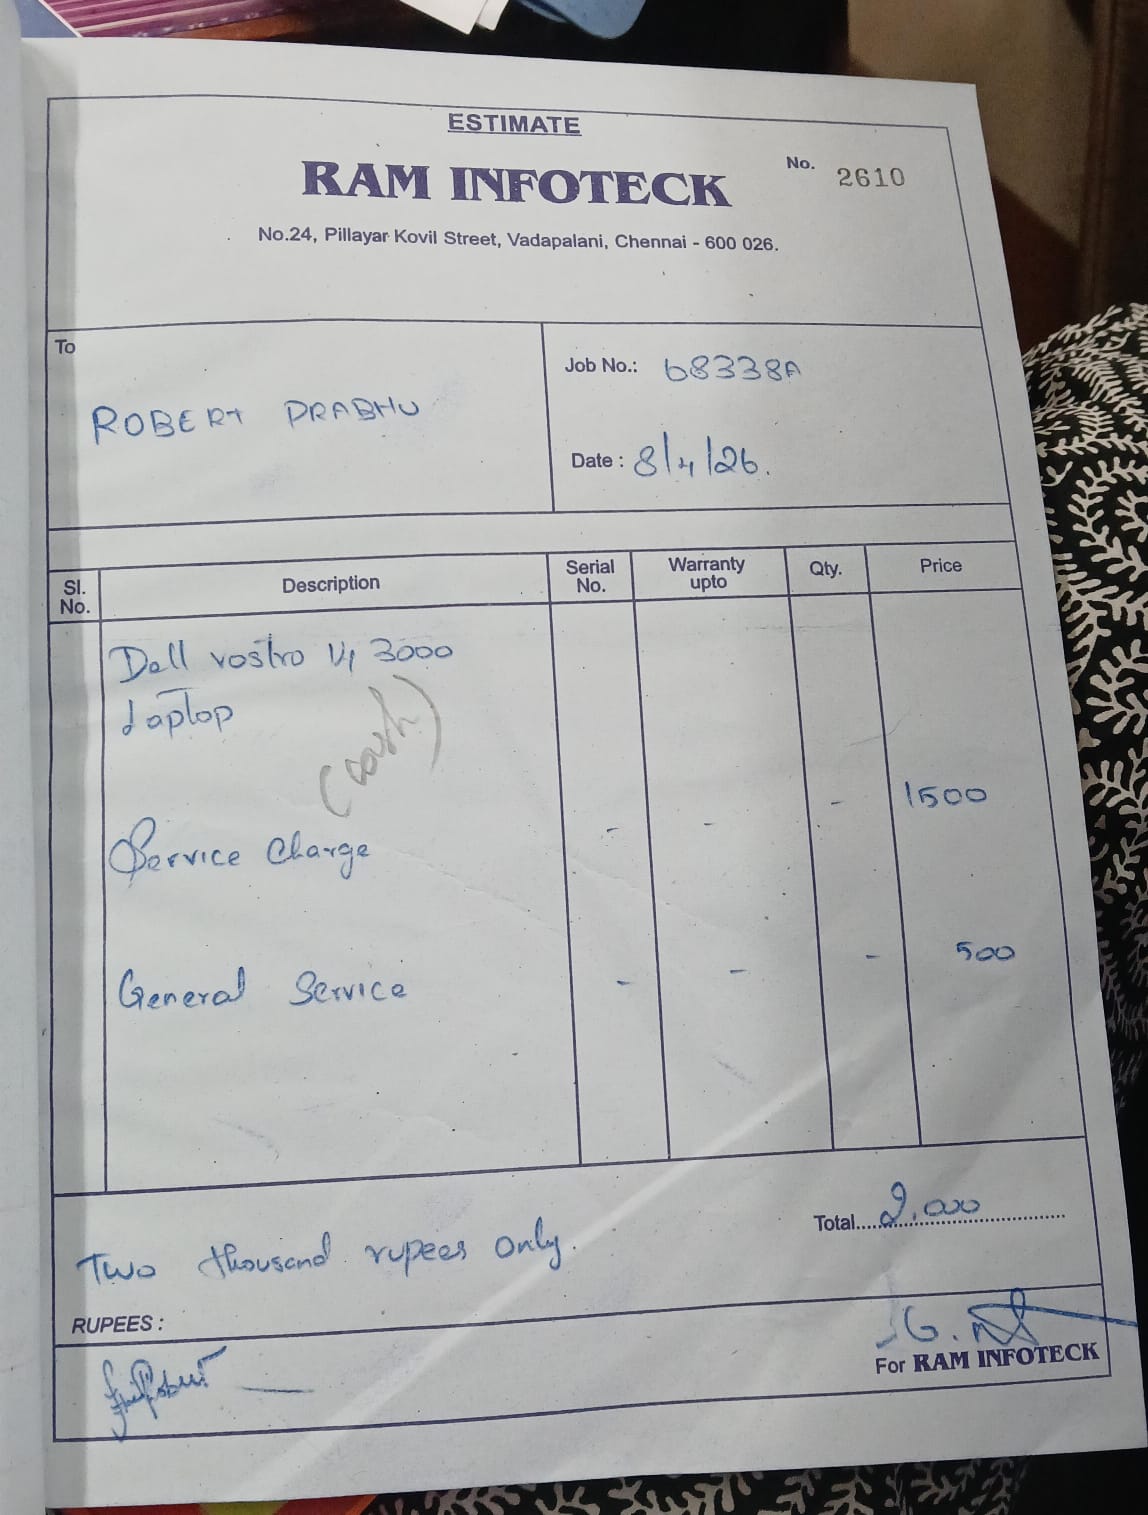 ESTIMATE
RAM INFOTECK
No. 2610
No.24, Pillayar Kovil Street, Vadapalani, Chennai - 600 026.
To
ROBERT PRABHU
Job No.: 68338A
Date : 8/4/26.
Sl. No. Description Serial No. Warranty upto Qty. Price
Dell vostro 3000
Laptop
(Cash)
Service Charge - - - 1500
General Service - - - 500
Total.... 2,000
Two thousand rupees only.
RUPEES :
For RAM INFOTECK